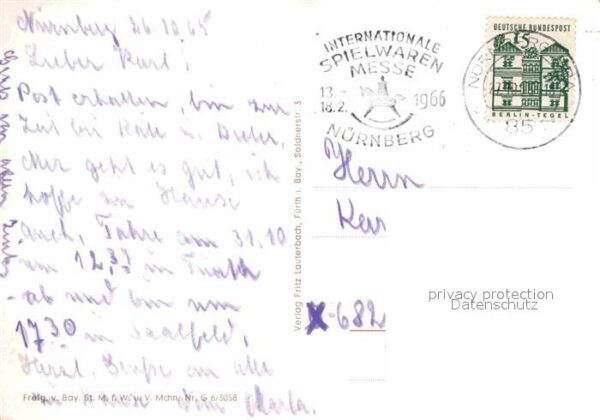 Nürnberg 26.10.65
Lieber Kurt!
Post erhalten, bin zur
Zeit bei Käte u. Dieter,
Mir geht es gut, ich
hoffe zu Hause
auch, Fahre am 31.10.
um 12,37 in Fürth
ab und bin um
17.30 in Saalfeld,
Herzl. Grüße an alle
zu Hause Deine
Freig. v. Bay. St. M. f. W. u. V. Mchn. Nr. G 6/3058
Verlag Fritz Lauterbach, Fürth i. Bay., Soldnerstr. 3
INTERNATIONALE
SPIELWAREN
MESSE
13.–
18.2.
1966
NÜRNBERG
DEUTSCHE BUNDESPOST
15
BERLIN-TEGEL
NÜRNBERG
85
Herrn
X-682
privacy protection
Datenschutz